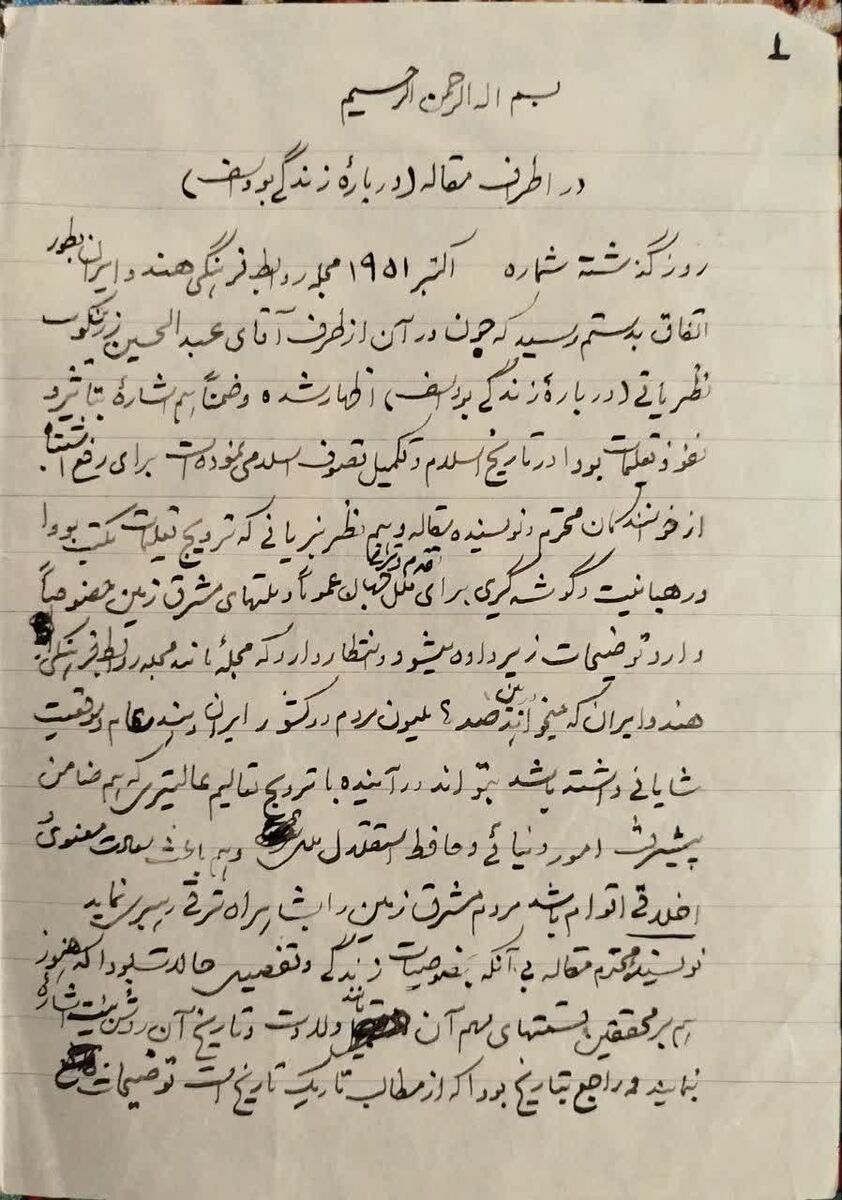 ۱
بسم اله الرحمن الرحیم
در اطراف مقاله (دربارهٔ زندگی بوداسف)
روز گذشته شماره اکتبر ۱۹۵۱ مجله روابط فرهنگی هند و ایران بطور
اتفاق بدستم رسید که چون در آن از طرف آقای عبدالحسین زرینکوب
نظریاتی (دربارهٔ زندگی بوداسف) اظهار شده و ضمناً هم اشارهٔ بتأثیر و
نفوذ تعلیمات بودا در تاریخ اسلام و تکمیل تصوف اسلامی نموده است برای رفع اشتباه
از خوانندگان محترم و نویسنده مقاله و هم نظر بزیانی که ترویج تعلیمات مکتب بودا
و رهبانیت و گوشه گیری برای ملل جهان عموماً و ملتهای مشرق زمین خصوصاً
دارد توضیحات زیر داده میشود و انتظار دارد که مجلهٔ مانند مجله روابط فرهنگی
هند و ایران که میخواند بین صد؟ ملیون مردم در کشور ایران و هند مقام و موقعیت
شایانی داشته باشد بتواند در آینده با ترویج تعالیم عالیتری که هم ضامن
پیشرفت امور دنیائی و حافظ استقلال ملل و هم باعث سعادت معنوی و
اخلاقی اقوام باشد مردم مشرق زمین را بشاهراه ترقی رهبری نماید
نویسندهٔ محترم مقاله بی آنکه بخصوصیات زندگی و تفصیل حالات بودا که هنوز
هم بر محققین قسمتهای مهم آن مانند ولادت و تاریخ آن روشن نیست اشارهٔ
نمایند و راجع بتاریخ بودا که از مطالب تاریک تاریخ است توضیحات